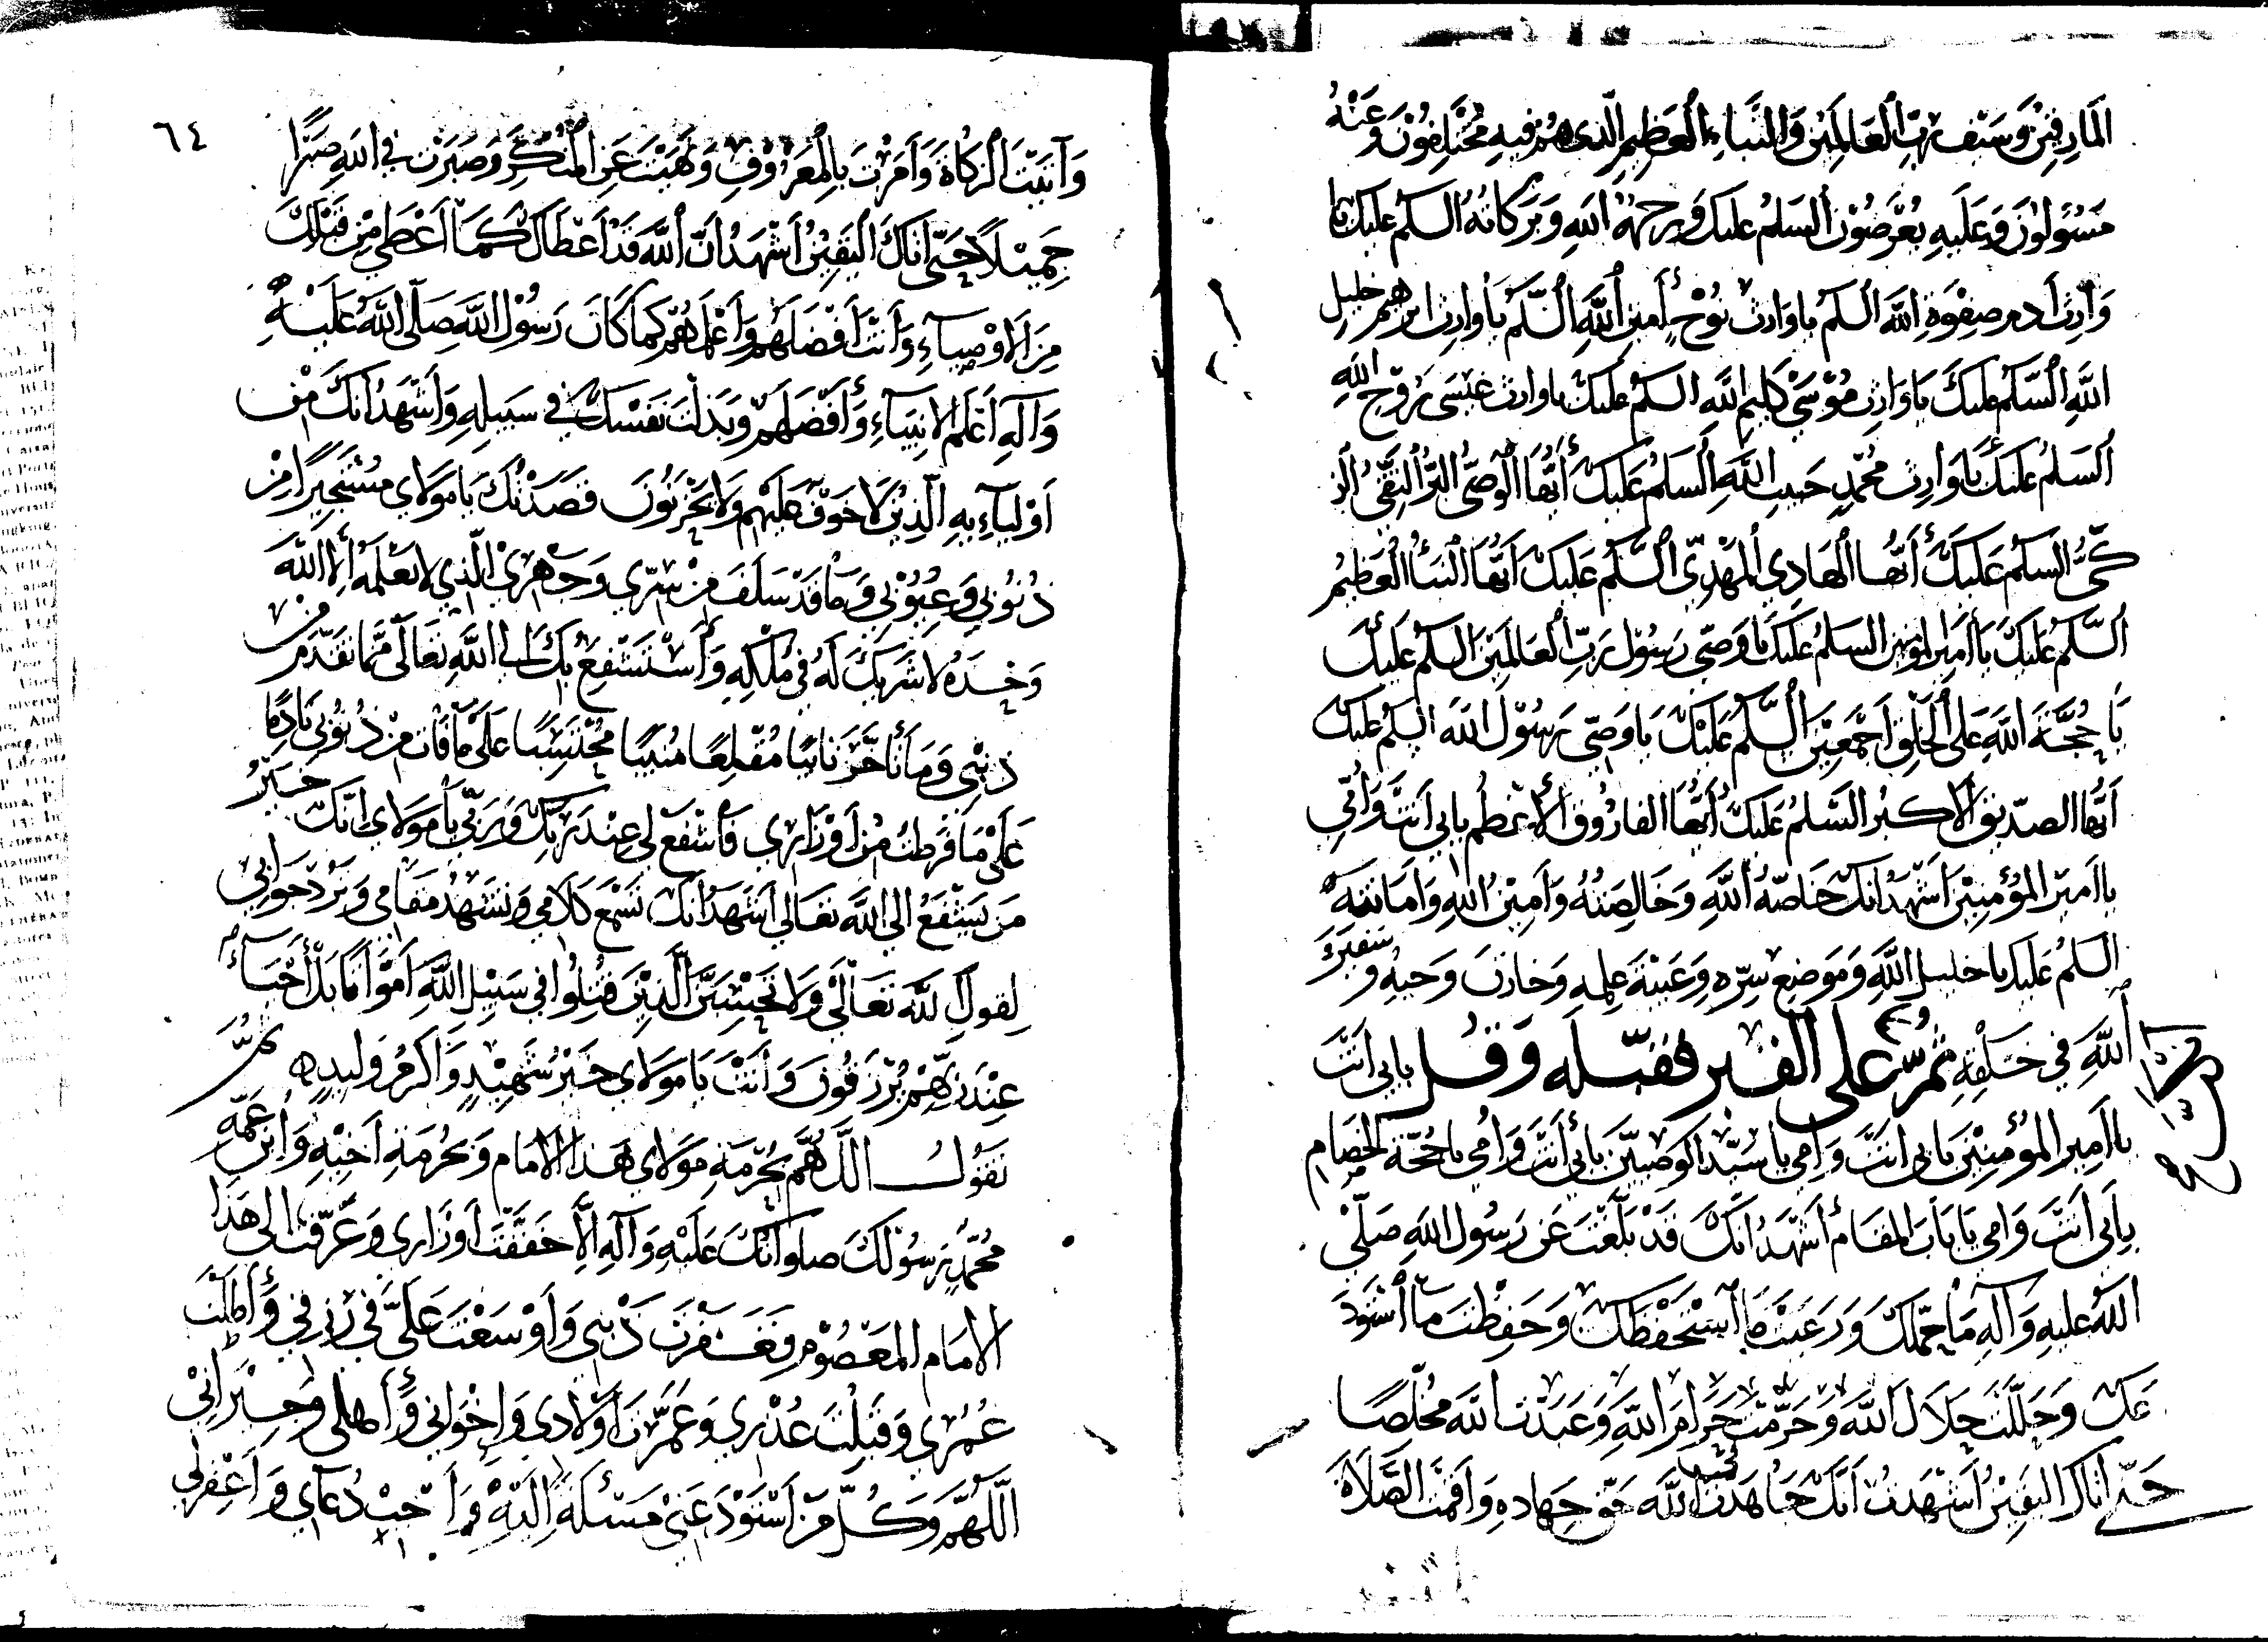 المارقين وسيف رب العالمين والنباء العظيم الذي هم فيه مختلفون وعنه
مسئولون وعليه يعرضون السلم عليك ورحمة الله وبركاته السلم عليك يا
وارث ادم صفوة الله السلم يا وارث نوح أمين الله السلم يا وارث ابرهيم خليل
الله السلم عليك يا وارث موسى كليم الله السلم عليك يا وارث عيسى روح الله
السلم عليك يا وارث محمد حبيب الله السلم عليك أيها الوصي البر التقي الز
كي السلم عليك أيها الهادي المهدي السلم عليك ايها النبأ العظيم
السلم عليك يا أمير المؤمنين السلم عليك يا وصي رسول رب العالمين السلم عليك
يا حجة الله على الخلق اجمعين السلم عليك يا وصي رسول الله السلم عليك
ايها الصديق الاكبر السلم عليك أيها الفاروق الأعظم بابي انت وامي
يا امير المؤمنين اشهد انك خاصة الله وخالصته وامين الله وامانته
السلم عليك يا خليل الله وموضع سره وعيبة علمه وخازن وحيه وسفير
الله في خلقه ثم على القبر فقبله وقل بابي انت
يا امير المؤمنين بابي انت وامي يا سيد الوصيين بابي أنت وامي يا حجة الخصام
بابي انت وامي يا باب المقام أشهد انك قد بلغت عن رسول الله صلى
الله عليه وآله ما حملك ورعيت ما استحفظك وحفظت ما استود
عك وحللت حلال الله وحرمت حرام الله وعبدت الله مخلصا
حتى اتاك اليقين اشهد انك جاهدت في الله حق جهاده واقمت الصلاة
٦٤
وآتيت الزكاة وامرت بالمعروف ونهيت عن المنكر وصبرت في الله صبرا
جميلا حتى اتاك اليقين اشهد ان الله قد أعطاك كما اعطي من قبلك
من الاوصياء وانت افضلهم واعلمهم كما كان رسول الله صلى الله عليه
وآله اعلم الانبياء وأفضلهم وبذلت نفسك في سبيله واشهد انك من
اوليآءه الذين لا خوف عليهم ولا يحزنون قصدتك يا مولاي مستجيرا من
ذنوبي وعيوبي وما قد سلف من سري وجهري الذي لا يعلمه الا الله
وحده لا شريك له في ملكه واستشفع بك الى الله تعالى مما تقدم من
ذنبي وما تأخر تايبا مقلعا منيبا محتسبا على ما فات من ذنوبي نادما
على ما فرطت من اوزاري فاشفع لي عند ربك وربي يا مولاي انك خير
من يستشفع الى الله تعالى اشهد انك تسمع كلامي وتشهد مقامي وترد جوابي
لقول الله تعالى ولا تحسبن الذين قتلوا في سبيل الله امواتا بل أحياء
عند ربهم يرزقون وانت يا مولاي خير شهيد واكرم وليد ثم
تقول اللهم بحرمة مولاي هذا الامام وبحرمة اخيه وابن عمه
محمد رسولك صلواتك عليه وآله الا خففت اوزاري وعرفت الى هذا
الامام المعصوم فغفرت ذنبي واوسعت علي في رزقي وأطلت
عمري وقبلت عذري وعمرت اولادي واخواني وأهلي وجيراني
اللهم وكل من استودعني مسئلة اليه واجب دعاي واغفر لي